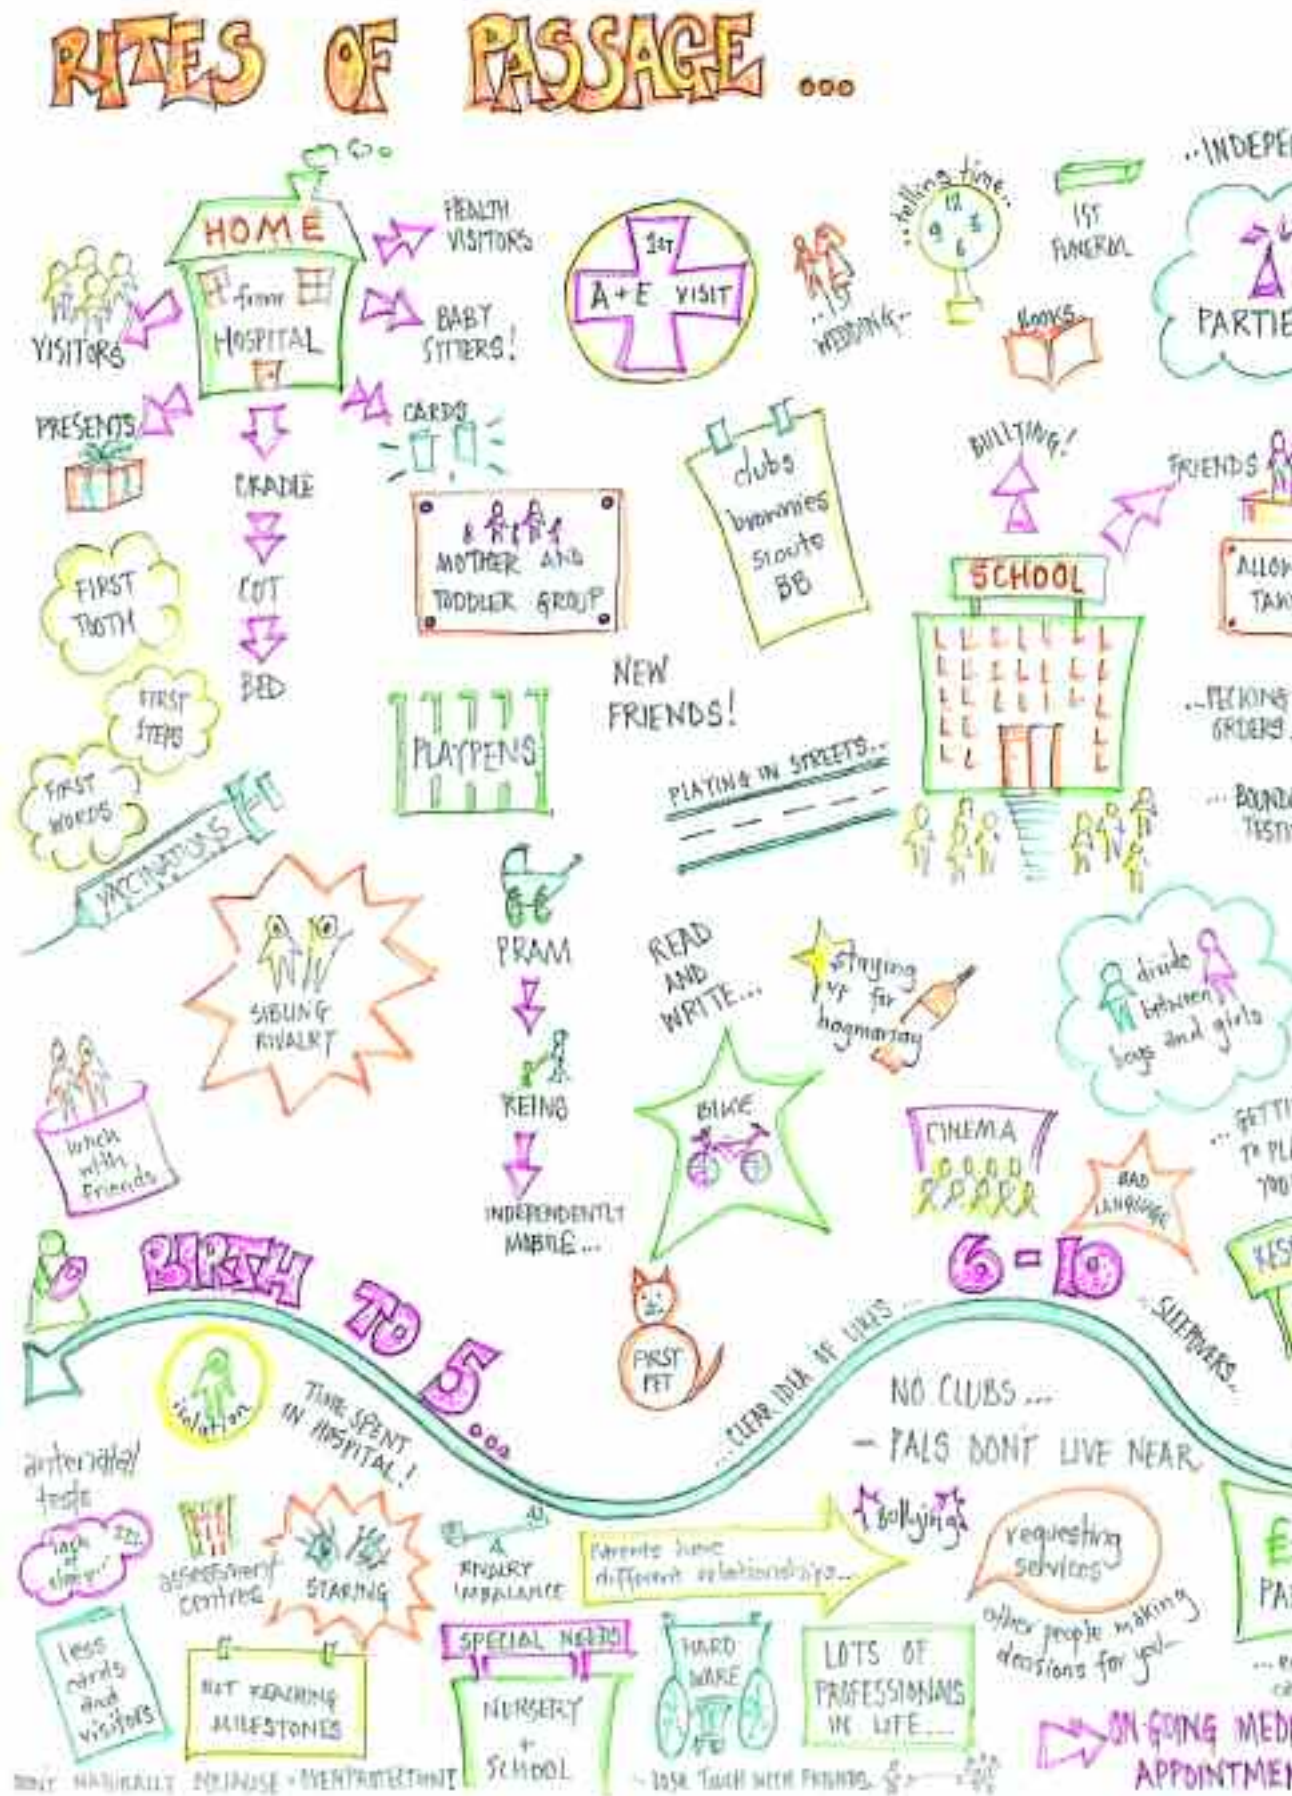 RITES OF PASSAGE ...
HOME
from
HOSPITAL
VISITORS
HEALTH
VISITORS
BABY
SITTERS!
PRESENTS
CARDS
CRADLE
COT
BED
FIRST
TOOTH
FIRST
STEPS
FIRST
WORDS
VACCINATIONS
1ST
A+E VISIT
1ST
WEDDING..
..telling time..
12
9 3
6
1ST
FUNERAL
BOOKS
PARTIE
MOTHER AND
TODDLER GROUP
clubs
brownies
scouts
BB
BULLYING!
FRIENDS
SCHOOL
PLAYPENS
NEW
FRIENDS!
PLAYING IN STREETS...
SIBLING
RIVALRY
PRAM
REINS
INDEPENDENTLY
MOBILE...
READ
AND
WRITE...
staying
up for
hogmanay
divide
between
boys and girls
lunch
with
Friends
BIKE
CINEMA
BAD
LANGUAGE
BIRTH TO 5...
6-10
FIRST
PET
...CLEAR IDEA OF LIKES...
SLEEPOVERS..
isolation
TIME SPENT
IN HOSPITAL!
NO CLUBS...
- PALS DONT LIVE NEAR
antenatal
tests
lack
of
sleep..
assessment
centres
STARING
RIVALRY
IMBALANCE
Parents have
different relationships...
Bullying
requesting
services
other people making
decisions for you-
less
cards
and
visitors
NOT REACHING
MILESTONES
SPECIAL NEEDS
NURSERY
+
SCHOOL
HARD
WARE
LOTS OF
PROFESSIONALS
IN LIFE....
ON-GOING MEDI
APPOINTMEN
- LOSE TOUCH WITH FRIENDS